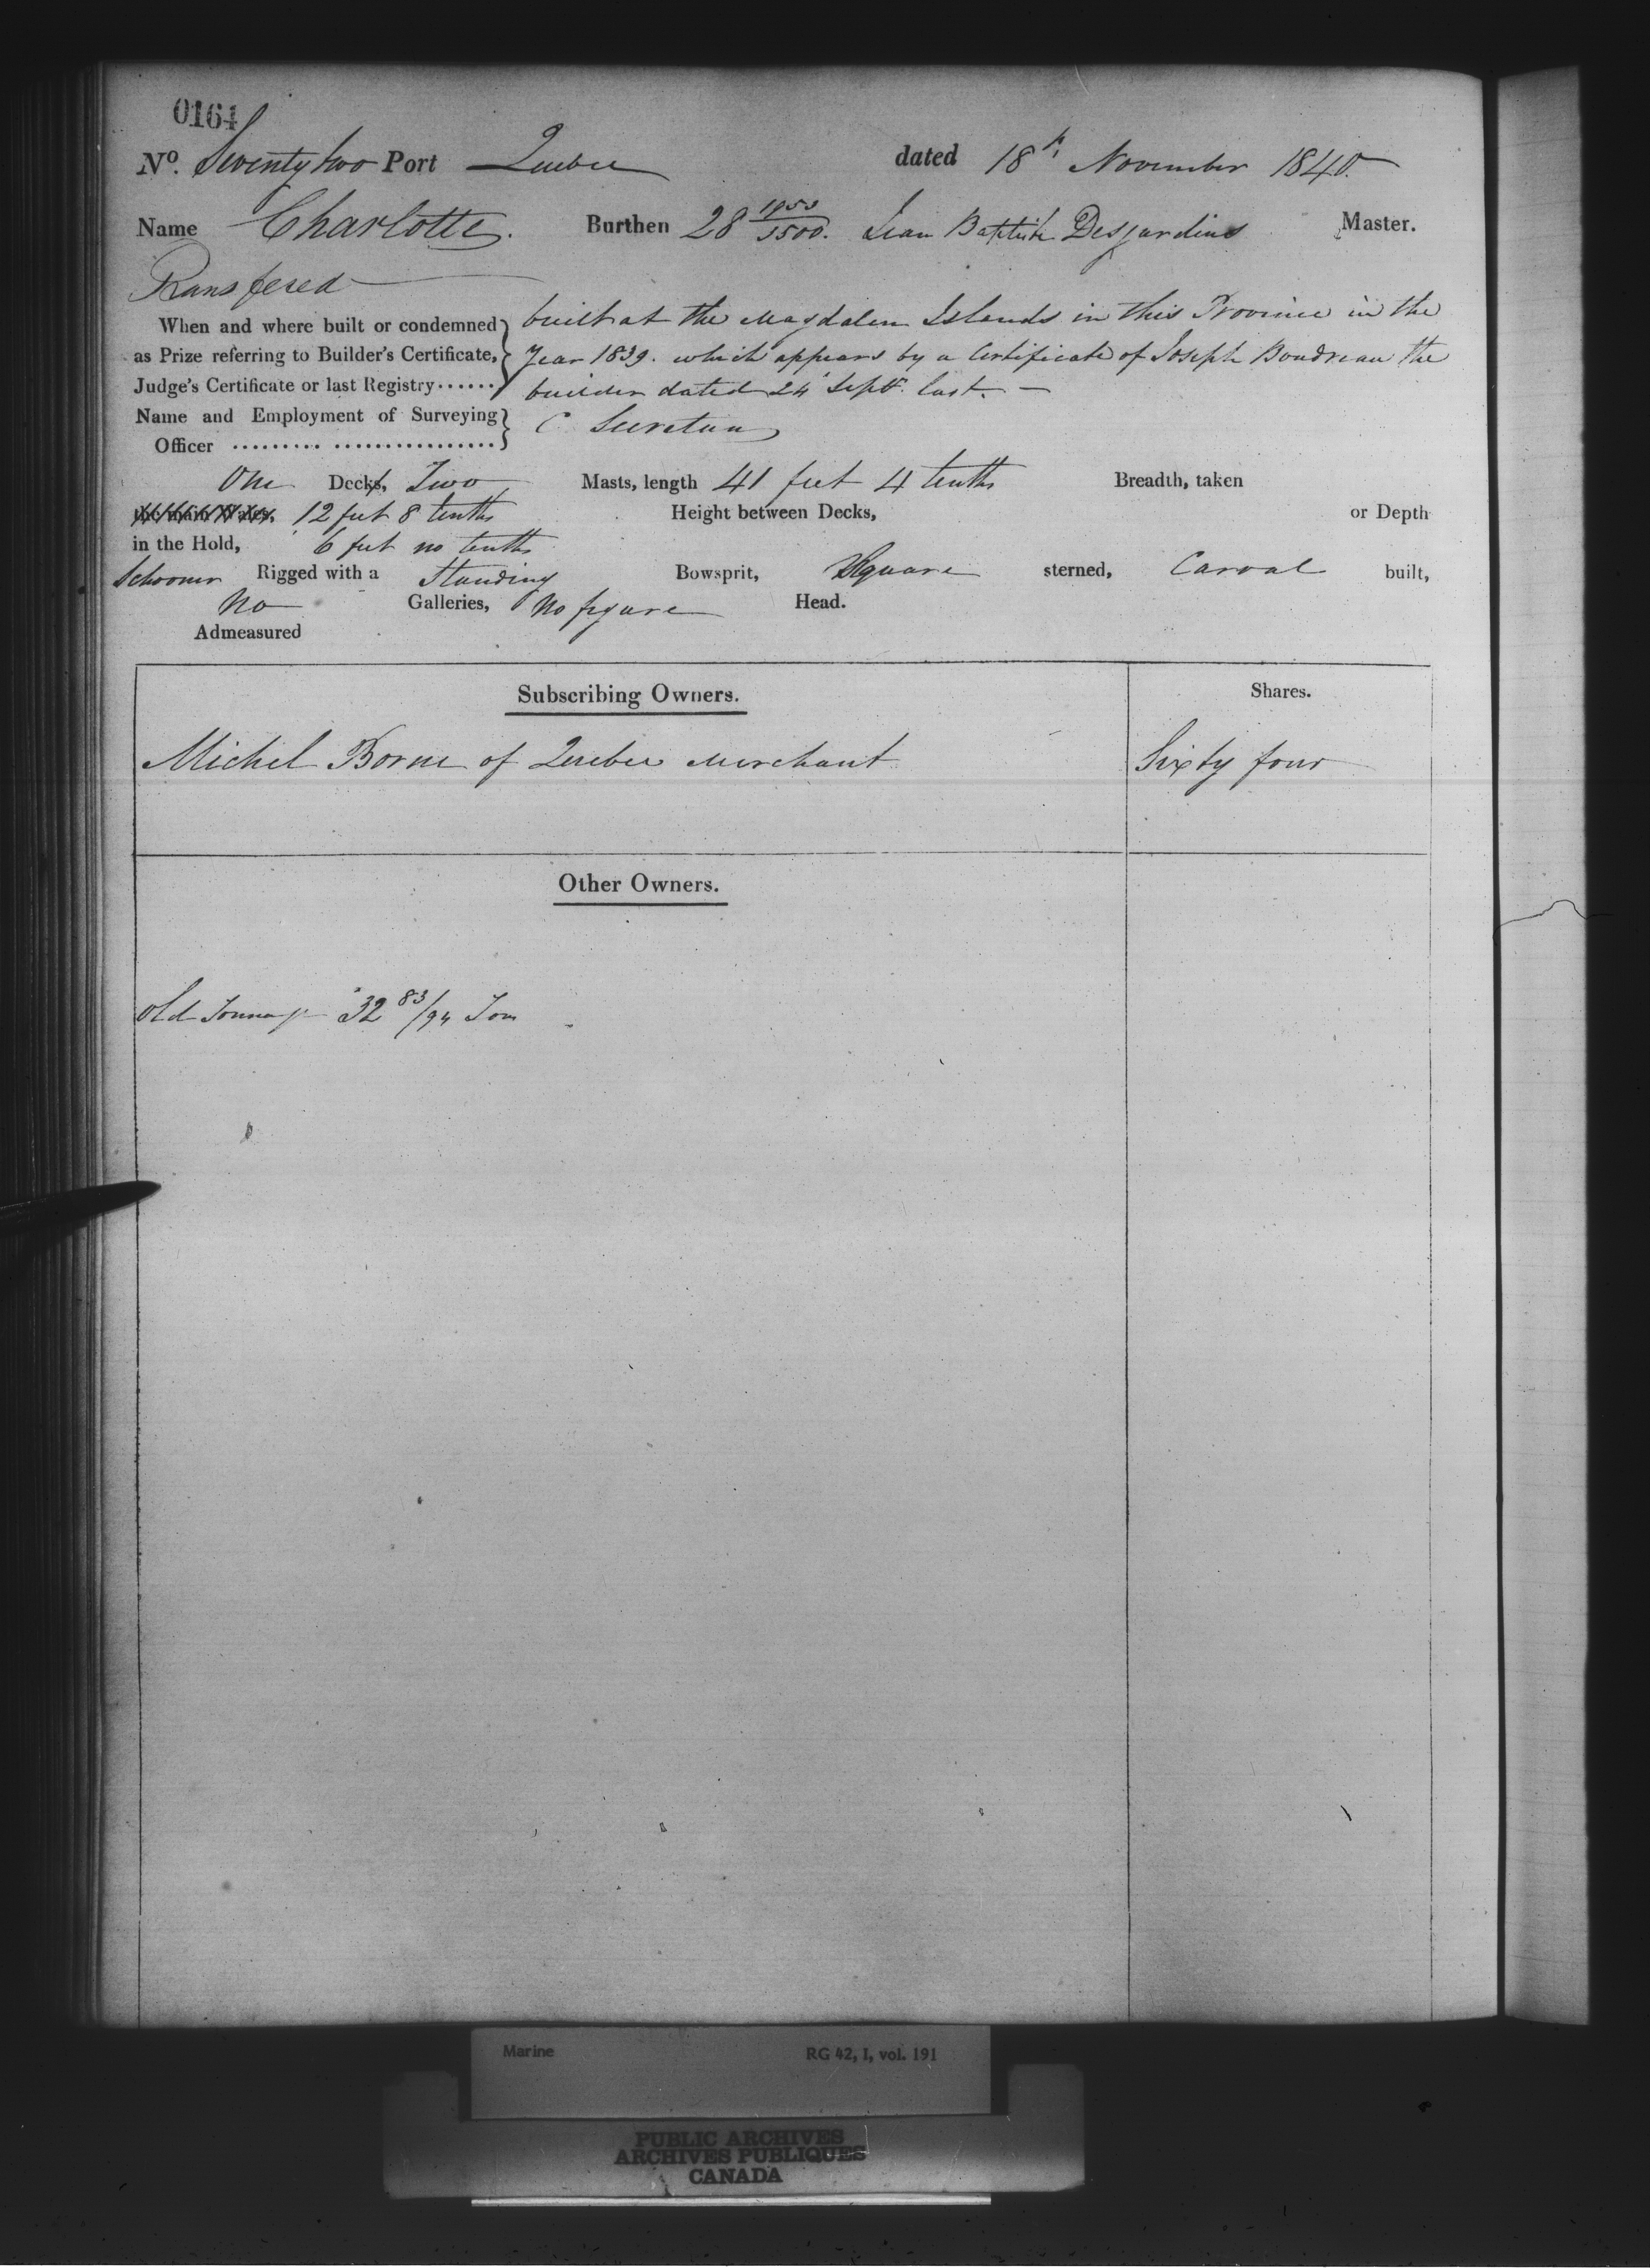 0164
No. Seventy two Port Quebec dated 18th November 1840.
Name Charlotte. Burthen 28 1953/3500. Jean Baptiste Desjardins Master.
Transfered
When and where built or condemned as Prize referring to Builder's Certificate, Judge's Certificate or last Registry......
built at the Magdalen Islands in this Province in the
Year 1839. which appears by a Certificate of Joseph Boudreau the
builder dated 24 Septr. last. —
Name and Employment of Surveying Officer
C Secretan
One Decks, Two Masts, length 41 feet 4 tenths Breadth, taken
the main Wales, 12 feet 8 tenths Height between Decks, or Depth
in the Hold, 6 feet no tenths
Schooner Rigged with a Standing Bowsprit, Square sterned, Carval built,
No Galleries, No figure Head.
Admeasured
Subscribing Owners. Shares.
Michel Borne of Quebec Merchant Sixty four
Other Owners.
Old Tonnage 32 83/94 Tons
Marine RG 42, I, vol. 191
PUBLIC ARCHIVES
ARCHIVES PUBLIQUES
CANADA